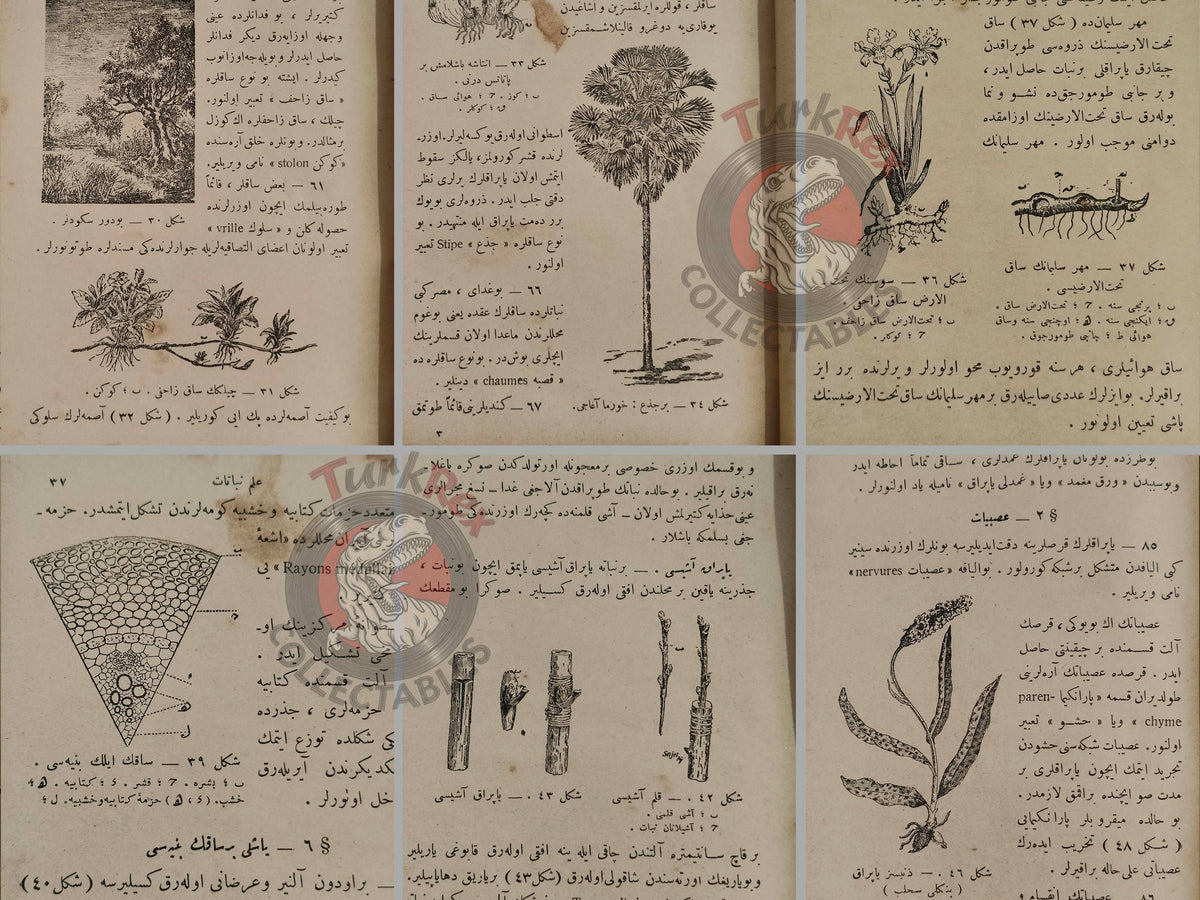 كتیریرلر ، بو فدانلرده عینی
وجهله اوزایه‌رق دیكر فدانلر
حاصل ایدرلر و بویله‌جه اوزانوب
كیدرلر . ایشته بو نوع ساقلره
« ساق زاحف » تعبیر اولنور.
چیلك ، ساق زاحفلره اك كوزل
مثالدر. و بونلره خلق آره‌سنده
« كوكن stolon » نامی ویریلیر.
٦١ — بعض ساقلر ، قائماً
طوره‌بیلمك ایچون اوزرلرنده
حصوله كلن و « سلوك vrille »
تعبیر اولونان اعضای التصاقیه‌لریله جوارلرنده‌كی مسندلره طوتونورلر .
شكل ٣٠ — بودور سكودلر .
شكل ٣١ — چیلكك ساق زاحفی . ب ؛ كوكن .
بو كیفیت آصمه‌لرده پك ایی كوریلیر . ( شكل ٣٢ ) آصمه‌لرك سلوكی
ساقلر ، قوللره ایرلمقسزین و اشاغیدن
یوقاری‌یه دوغرو قالینلاشمقسزین
شكل ٣٣ — انتاشه باشلامش بر
پاتاتس درنی .
ب ؛ كوز . ج ؛ هوائی ساق .
ق ؛ كوكلر .
اسطوانی اوله‌رق یوكسه‌لیرلر. اوزر-
لرنده قشر كورولمز، یالكز سقوط
ایتمش اولان یاپراقلرك یرلری نظر
دقتی جلب ایدر . ذروه‌لری بویوك
برر دمت یاپراق ایله منتهیدر . بو
نوع ساقلره « جذع » Stipe تعبیر
اولنور .
٦٦ — بوغدای ، مصر كبی
نباتلرده ساقلرك عقده یعنی بوغوم
محللرندن ماعدا اولان قسملرینك
ایچلری بوش‌در . بو نوع ساقلره ده
« قصبه chaumes » دینلیر .
٦٧ — كندیلرینی قائماً طوتمق
شكل ٣٤ — بر جذع : خورما آغاجی.
٣
مهر سلیمان‌ده ( شكل ٣٧ ) ساق
تحت‌الارضیسنك ذروه‌سی طوپراقدن
چیقارق یاپراقلی بر نبات حاصل ایدر ،
و بر جانبی طومورجق‌ده نشو و نما
بوله‌رق ساق تحت‌الارضینك اوزامقده
دوامنی موجب اولور . مهر سلیمانك
شكل ٣٧ — مهر سلیمانك ساق
تحت‌الارضیسی .
ب ؛ برنجی سنه . ج ؛ تحت‌الارض ساق .
ق ؛ ایكنجی سنه . ه ؛ اوچنجی سنه و ساق
هوائی ط ؛ جانبی طومورجوق .
شكل ٣٦ — سوسنك تحت
الارض ساق زاحفی
ب ؛ تحت‌الارض ساق زاحف .
ج ؛ كوكلر .
ساق هوائیلری ، هر سنه قورویوب محو اولورلر و یرلرنده برر ایز
براقیرلر. بو ایزلرك عددی صاییله‌رق بر مهر سلیمانك ساق تحت‌الارضیسنك
یاشی تعیین اولونور .
٣٧ علم نباتات
متعدد حزمات كتابیه و خشبیه كومه‌لرندن تشكل ایتمشدر. حزمه -
آیران محللرده « اشعهٔ
Rayons medullai » یی
مركزینك او-
تشكیل ایدر .
آلت قسمنده كتابیه
حزمه‌لری ، جذرده
كی شكلده توزع ایتمك
یكدیكرندن آیریله‌رق
داخل اولورلر .
شكل ٣٩ — ساقك ایلك بنیه‌سی .
ب ؛ بشره . ج ؛ قشر . د ؛ كتابیه . ه ؛
خشب. ( د ، ه ) حزمهٔ كتابیه و خشبیه. ل ؛
§ ٦ — یاشلی بر ساقك بنیه‌سی
— بر اودون آلنیر و عرضانی اوله‌رق كسیلیرسه ( شكل ٤٠ )
و بو قسمك اوزری خصوصی بر معجونله اورتولدكدن صوكره باغلا-
نه‌رق براقیلیر . بو حالده نباتك طوپراقدن آلاجغی غدا — نسغ مجرالری
عینی حذایه كتیرلمش اولان — آشی قلمنه‌ده كچه‌رك اوزرنده‌كی طومور-
جغی بسلمكه باشلار .
یاپراق آشیسی . — بر نباته یاپراق آشیسی یاپمق ایچون بو نبات ،
جذرینه یاقین بر محلندن افقی اوله‌رق كسیلیر . صوكرا بو مقطعك
شكل ٤٢ . — قلم آشیسی
ب ؛ آشی قلمی .
ج ؛ آشیلانان نبات .
شكل ٤٣ . — یاپراق آشیسی
بر قاچ سانتیمتره آلتندن چاقی ایله ینه افقی اوله‌رق قابوغی یاریلیر
و بو یاریغك اورته‌سندن شاقولی اوله‌رق ( شكل ٤٣ ) بر یاریق دها یاپیلیر.
بو طرزده بولونان یاپراقلرك غمدلری ، ساقی تماماً احاطه ایدر
و بو سببدن « ورق مغمد » و یا « غمدلی یاپراق » نامیله یاد اولنورلر .
§ ٢ — عصبیات
٨٥ — یاپراقلرك قرصلرینه دقت ایدیلیرسه بونلرك اوزرنده سینیر
كبی الیافدن متشكل بر شبكه كورولور . بو الیافه « عصبیات nervures »
نامی ویریلیر .
عصبیاتك اك بویوكی ، قرصك
آلت قسمنده بر چیقینتی حاصل
ایدر . قرصده عصبیاتك آره‌لرینی
طولدیران قسمه « پارانكیما paren-
chyme » و یا « حشو » تعبیر
اولنور. عصبیات شبكه‌سنی حشودن
تجرید ایتمك ایچون یاپراقلری بر
مدت صو ایچنده براقمق لازمدر.
بو حالده میقروبلر پارانكیمایی
( شكل ٤٨ ) تخریب ایده‌رك
عصبیاتی علی حاله براقیرلر .
شكل ٤٦ . — ذنیبسز یاپراق
( بنكلی سحلب )
٨٦ — عصبیاتك انقسام و
TurkRex
COLLECTABLES
TurkRex
COLLECTABLES